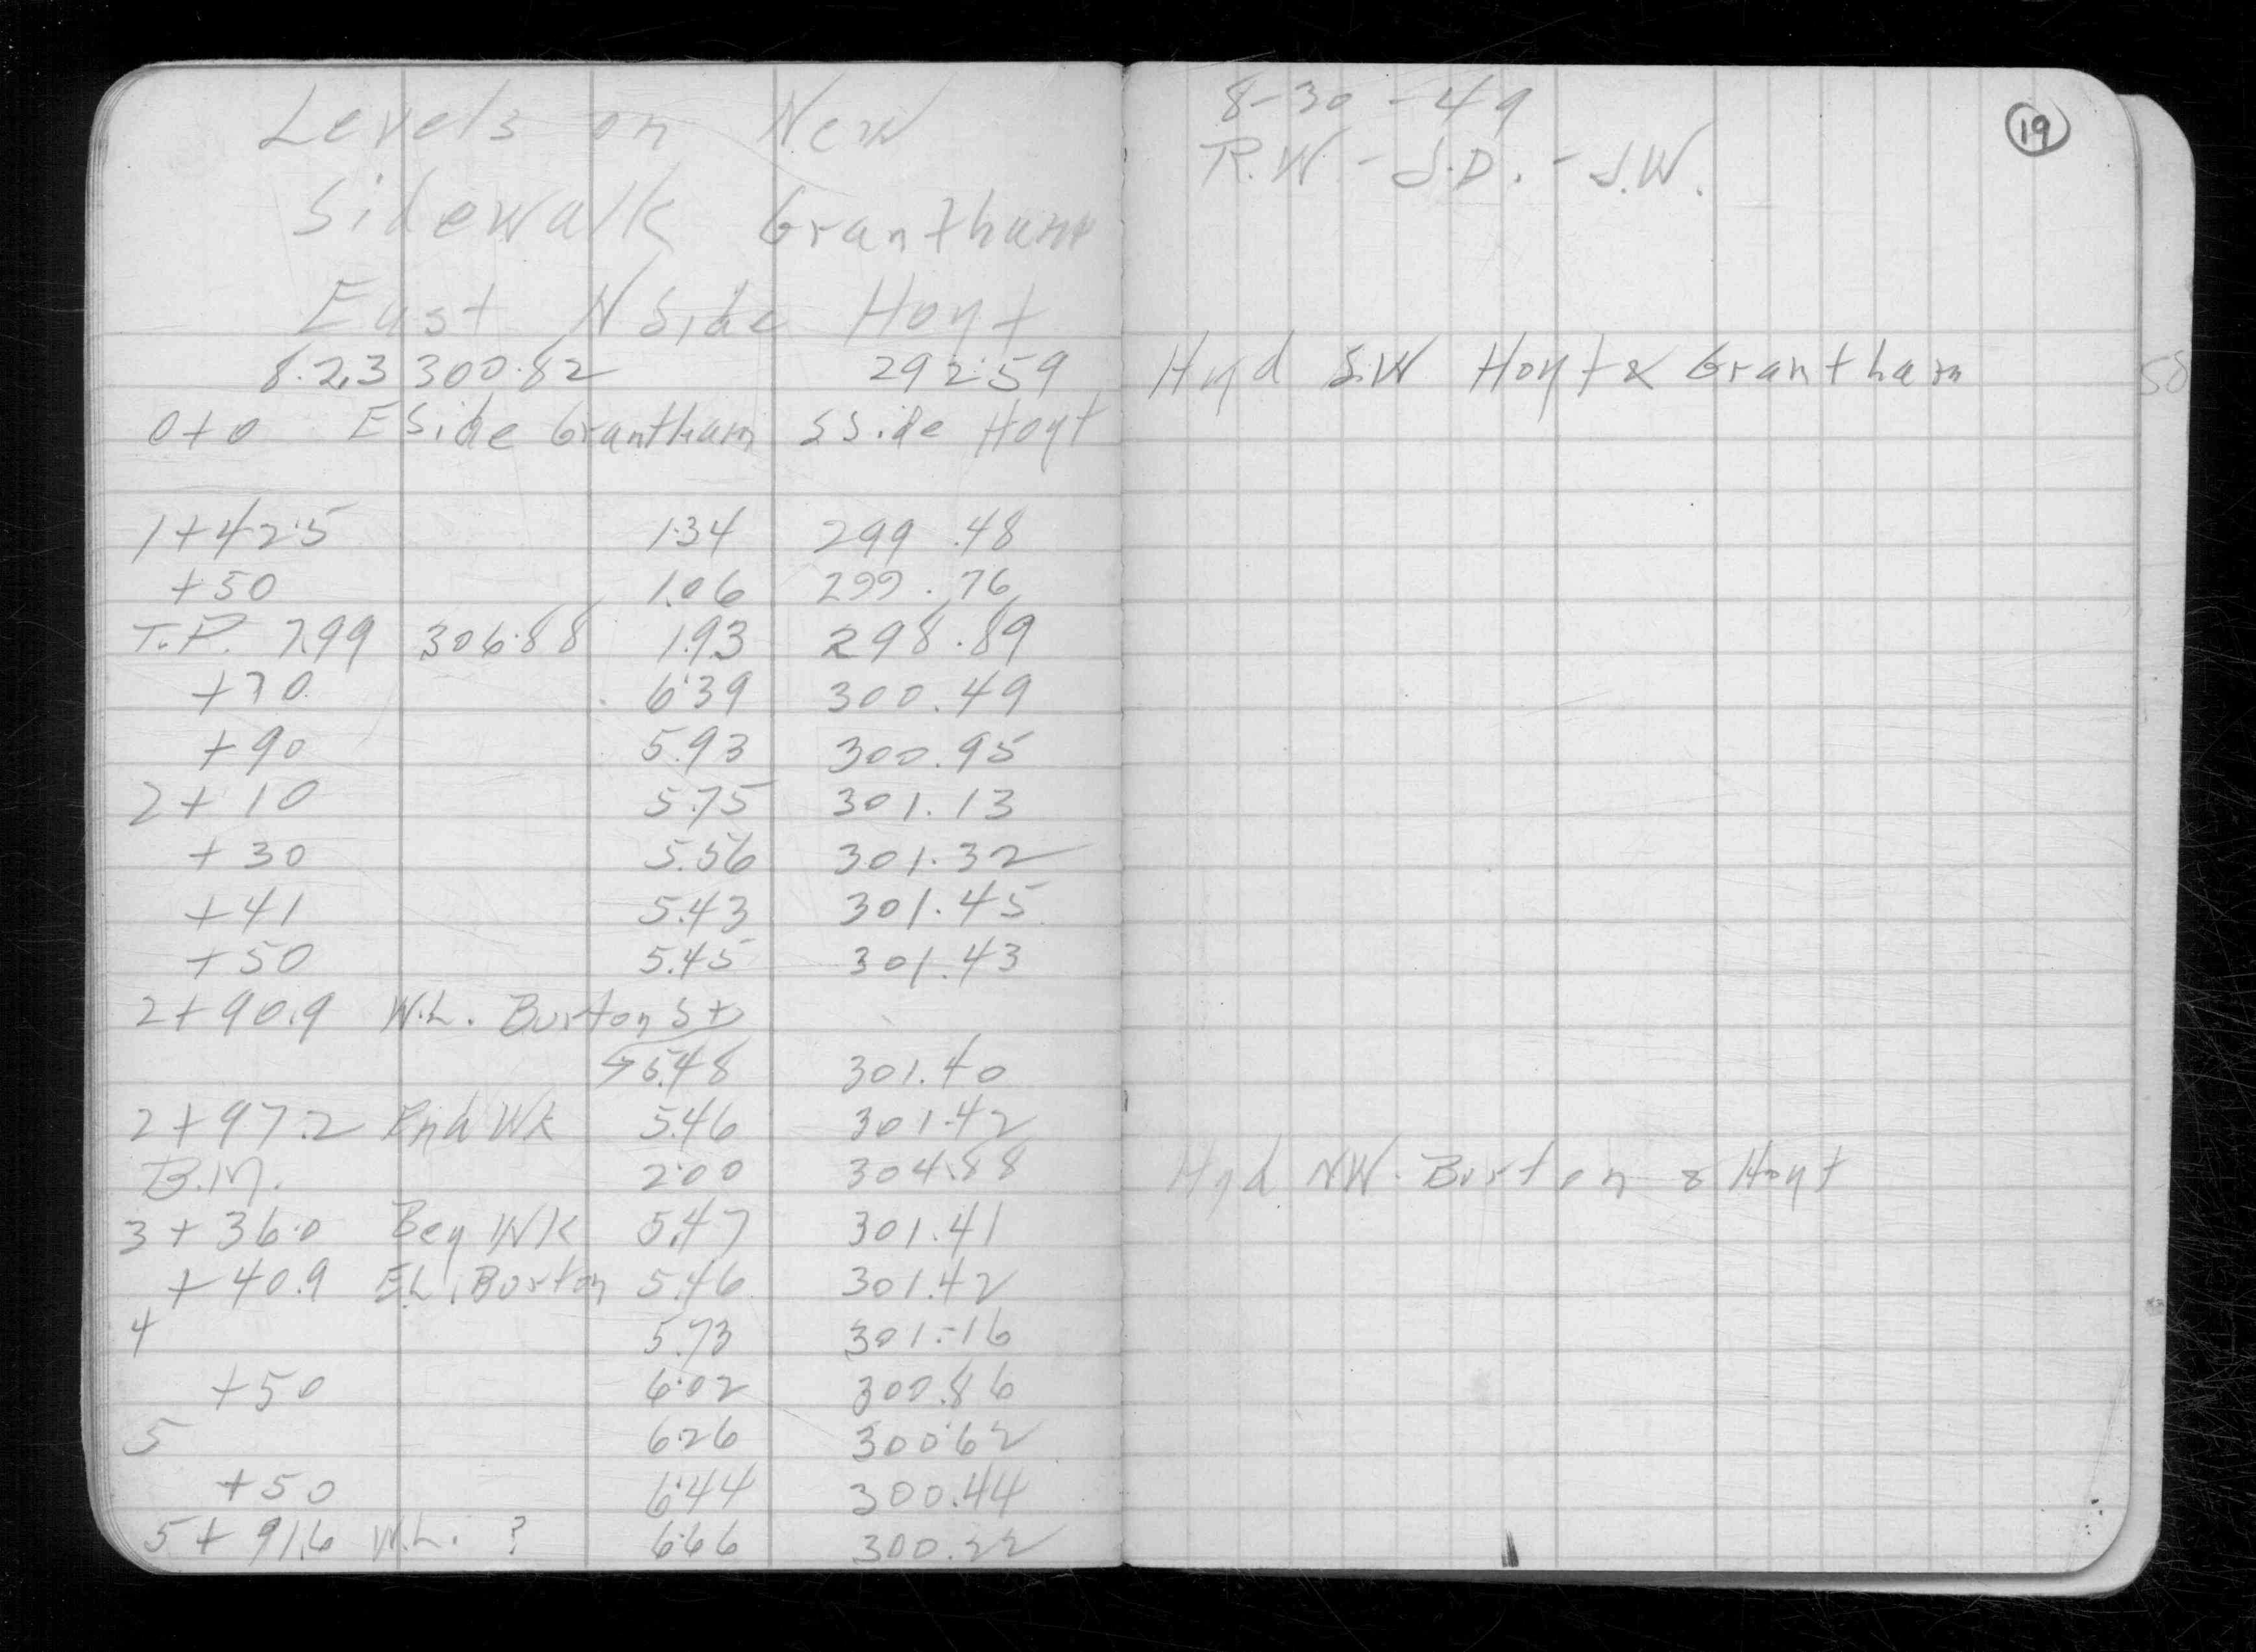 Levels on New
Sidewalk Grantham
East N Side Hoyt
8.23 300.82 292.59
0+0 E Side Grantham S Side Hoyt
1+42.5 1.34 299.48
+50 1.06 299.76
T.P. 7.99 306.88 1.93 298.89
+70 6.39 300.49
+90 5.93 300.95
2+10 5.75 301.13
+30 5.56 301.32
+41 5.43 301.45
+50 5.45 301.43
2+90.9 W.L. Burton St
5.48 301.40
2+97.2 End Wk 5.46 301.42
B.M. 2.00 304.88
3+36.0 Beg Wk 5.47 301.41
+40.9 E.L. Burton 5.46 301.42
4 5.73 301.16
+50 6.02 300.86
5 6.26 300.62
+50 6.44 300.44
5+91.6 W.L. ? 6.66 300.22
8-30-49
R.W. - J.D. - J.W.
19
Hyd S.W Hoyt & Grantham
Hyd N.W. Burton & Hoyt
58